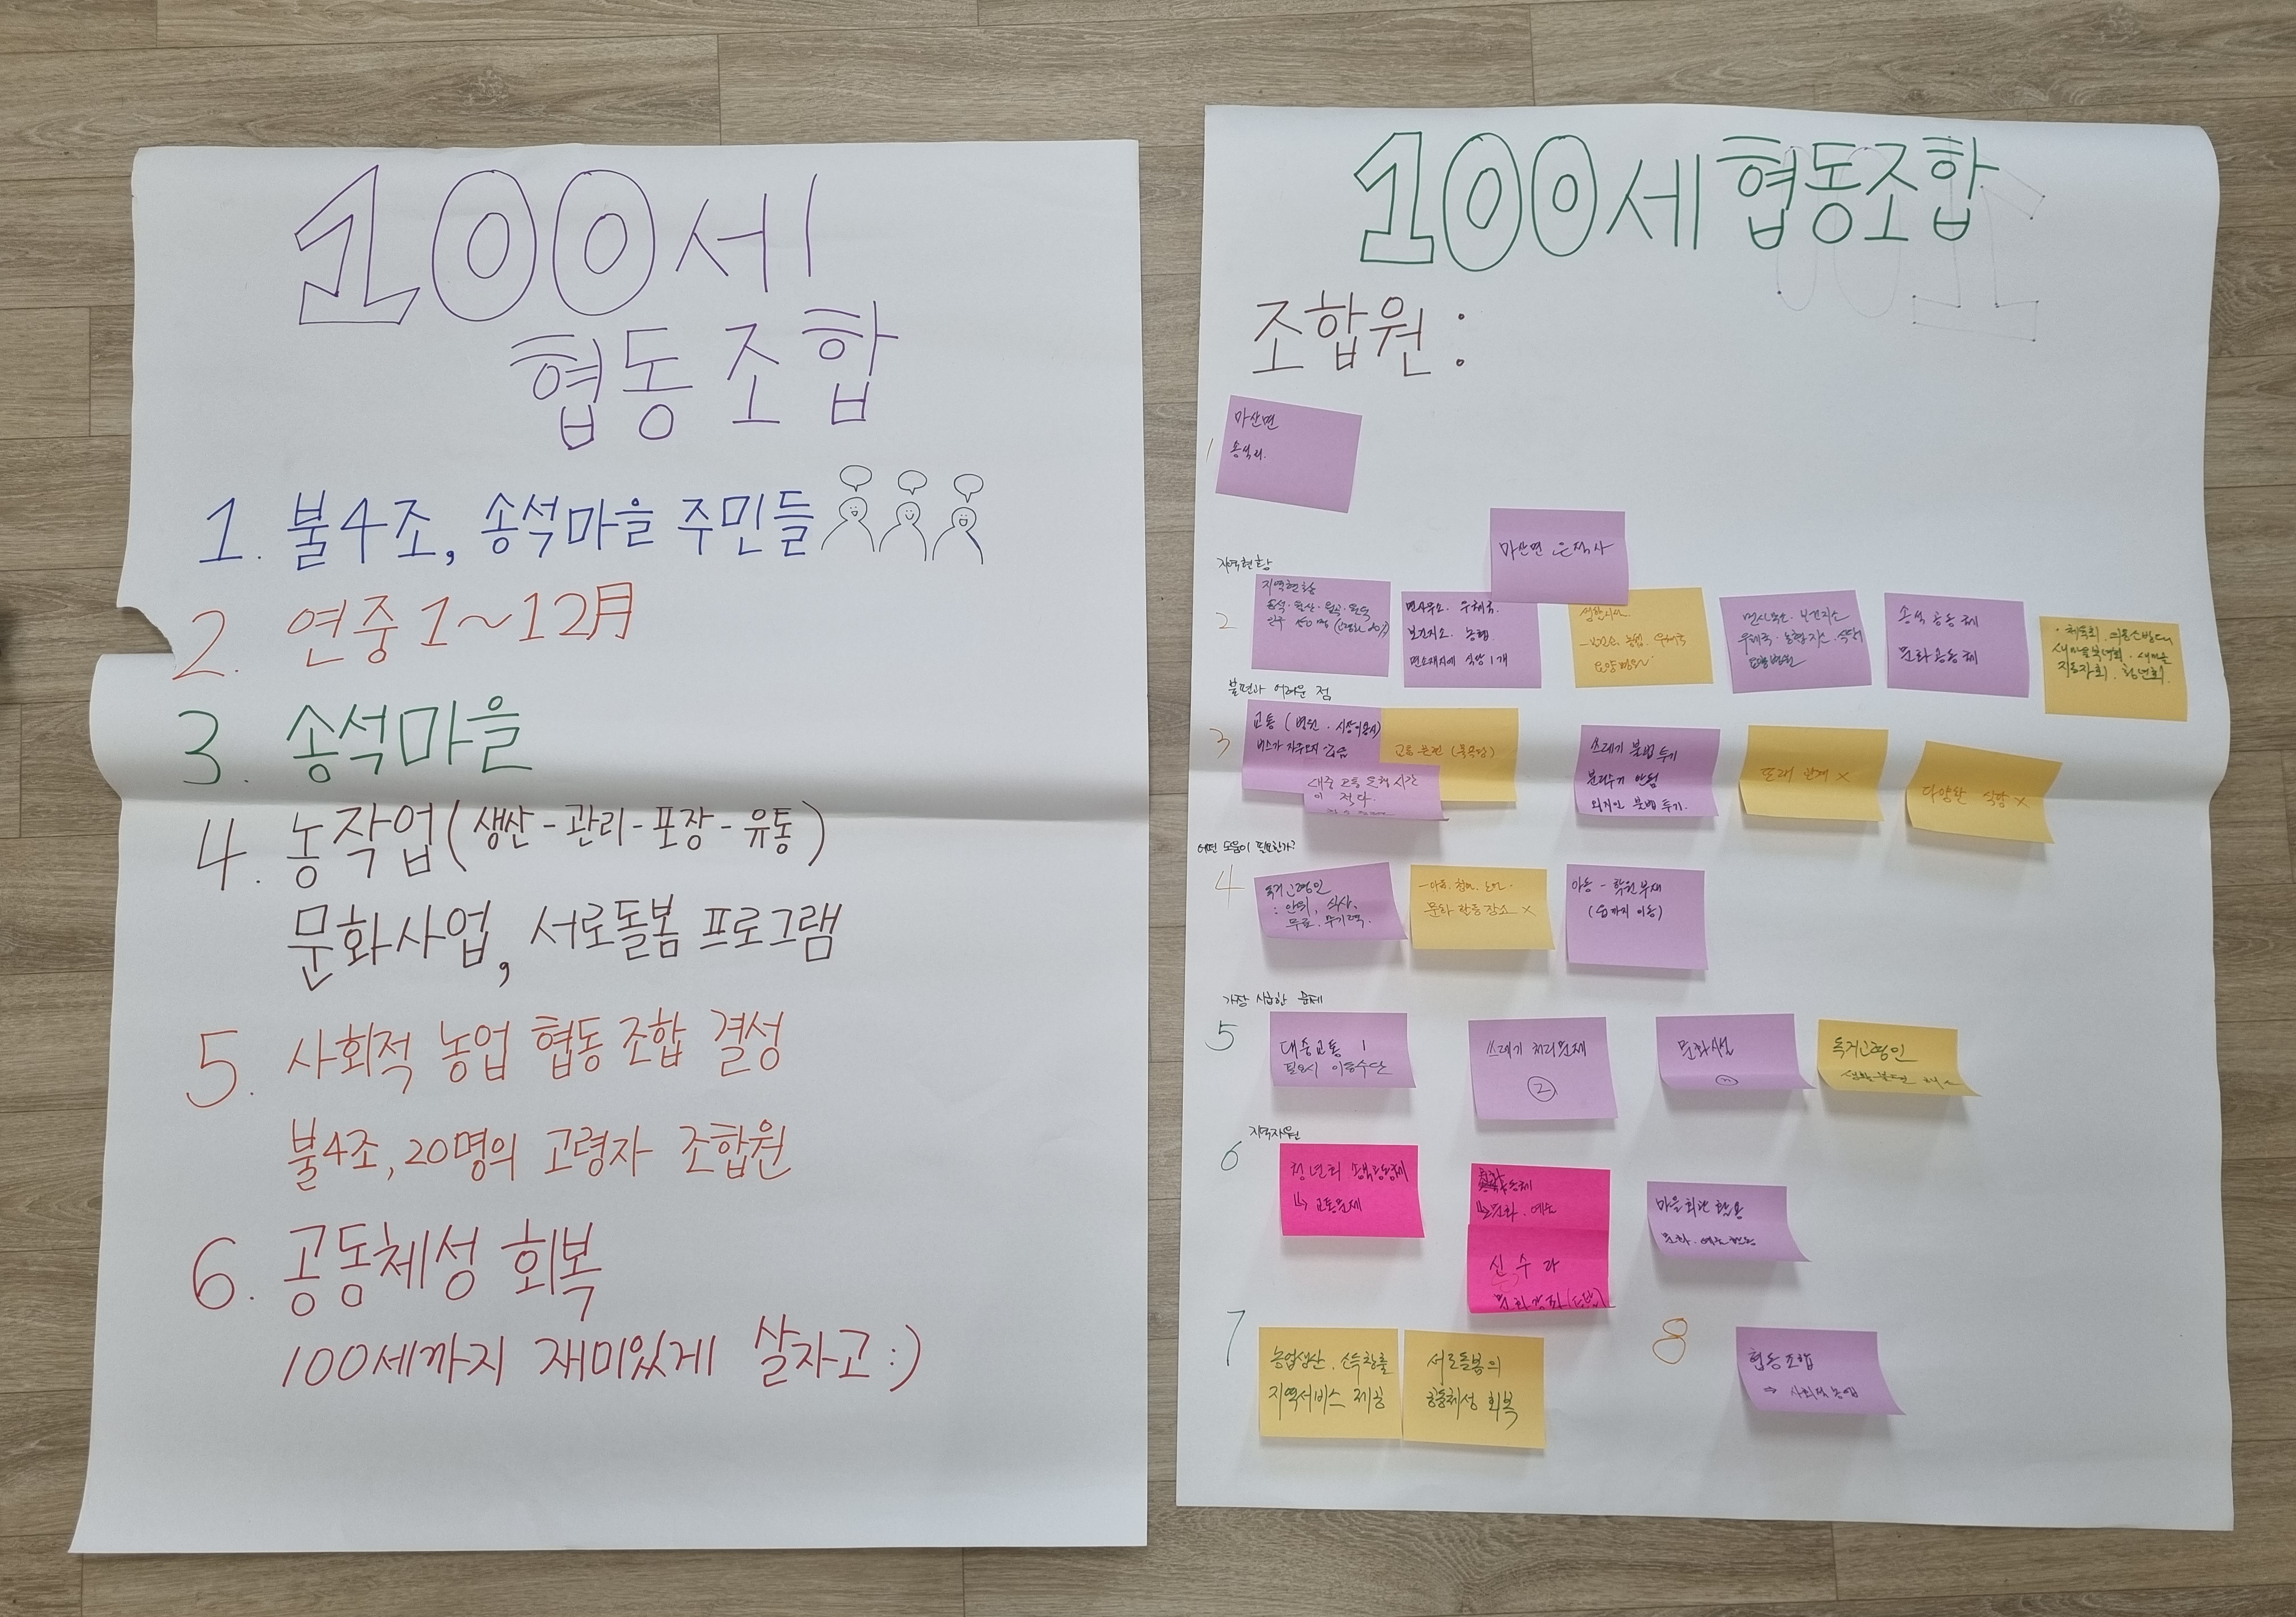 100세
협동조합
1. 불4조, 송석마을 주민들
2. 연중 1~12月
3. 송석마을
4. 농작업(생산-관리-포장-유통)
문화사업, 서로돌봄 프로그램
5. 사회적 농업 협동조합 결성
불4조, 20명의 고령자 조합원
6. 공동체성 회복
100세까지 재미있게 살자고:)
100세 협동조합
조합원:
1
마산면
송석리.
마산면 은적사
지역현황
2
지역현황
면사무소. 우체국.
보건지소. 농협.
면소재지에 식당 1개
송석 공동체
문화 공동체
·체육회. 의용소방대
새마을부녀회. 새마을
지도자회. 청년회.
불편과 어려운 점
3
교통 (병원. 시장이용시)
버스가 자주오지 않음
대중 교통 운행 시간
이 적다.
쓰레기 불법 투기
분리수거 안됨
외지인 불법 투기.
또래 관계 x
다양한 식당 x
어떤 도움이 필요한가?
4
독거노령인
문화 활동 장소 x
아동 - 학원 부재
(읍까지 이동)
가장 시급한 문제
5
대중교통 1
필요시 이동수단
쓰레기 처리문제
②
문화시설
독거노령인
생활불편 해소
지역자원
6
청년회 송석공동체
↳ 교통문제
↳문화. 예술
마을회관 활용
7
농업생산. 소득창출
지역서비스 제공
서로돌봄의
공동체성 회복
8
협동조합
⇒ 사회적농업